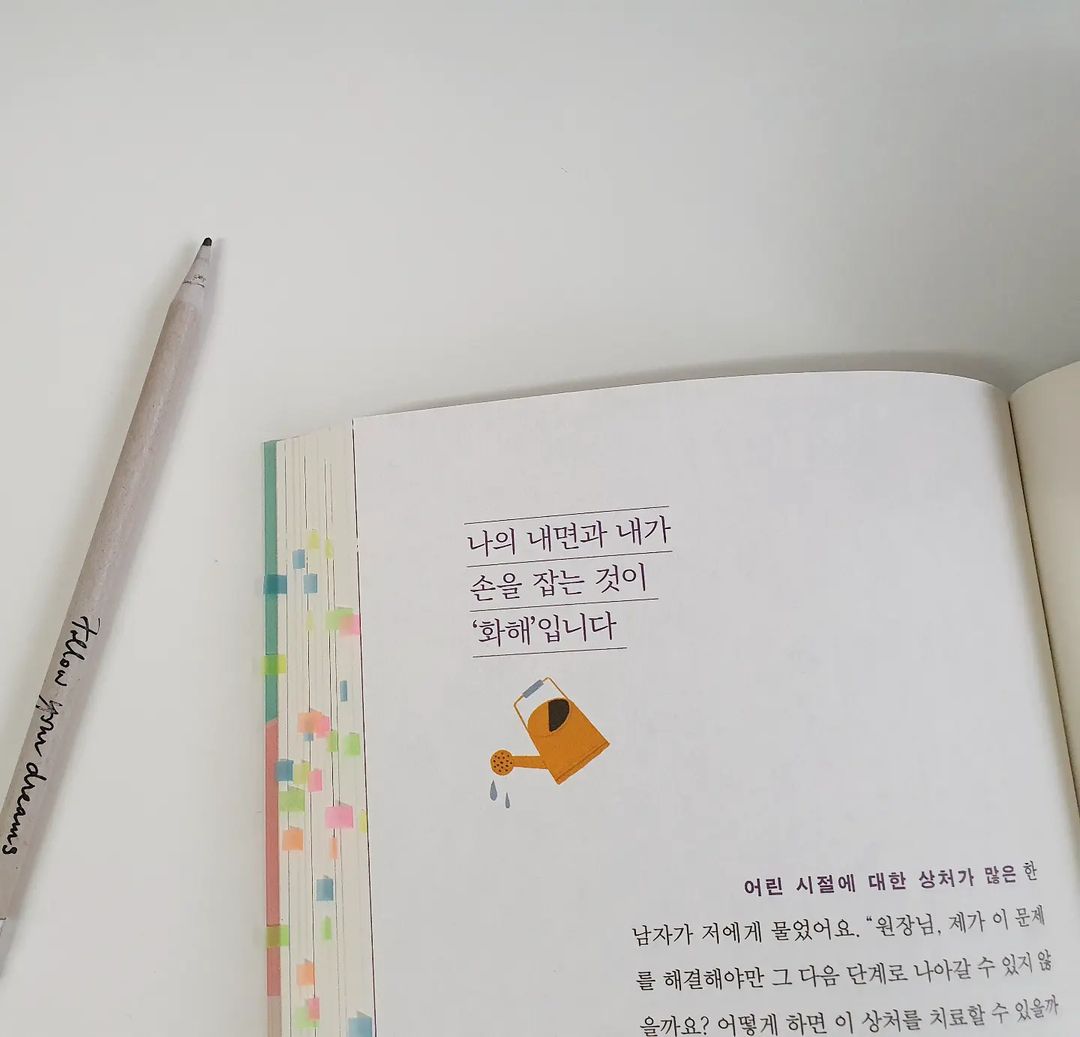 follow your dreams
나의 내면과 내가
손을 잡는 것이
‘화해’입니다
어린 시절에 대한 상처가 많은 한
남자가 저에게 물었어요. “원장님, 제가 이 문제
를 해결해야만 그 다음 단계로 나아갈 수 있지 않
을까요? 어떻게 하면 이 상처를 치료할 수 있을까